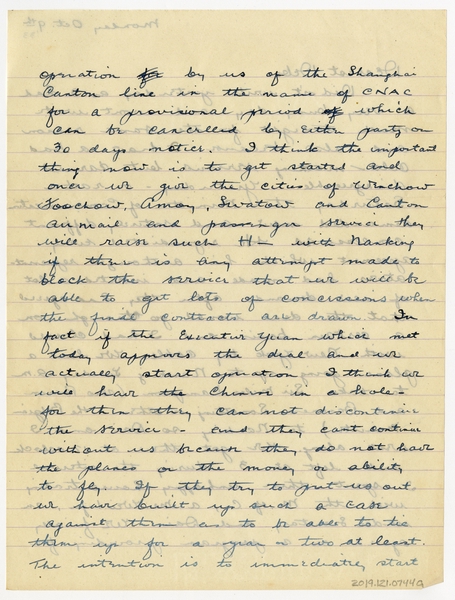 operation for by us of the Shanghai
Canton line in the name of CNAC
for a provisional period of which
can be cancelled by either party on
30 days notice. I think the important
thing now is to get started and
once we give the cities of Wenchow
Foochow, Amoy, Swatow and Canton
air mail and passenger service they
will raise such H— with Nanking
if there is any attempt made to
block the service that we will be
able to get lots of concessions when
the final contracts are drawn. In
fact if the Executive Yuan which met
today approves the deal and we
actually start operation I think we
will have the Chinese in a hole -
for then they can not discontinue
the service - and they cant continue
without us because they do not have
the planes or the money or ability
to fly. If they try to put us out
we have built up such a case
against them as to be able to tie
them up for a year or two at least.
The intention is to immediatley start
2019.121.0744G